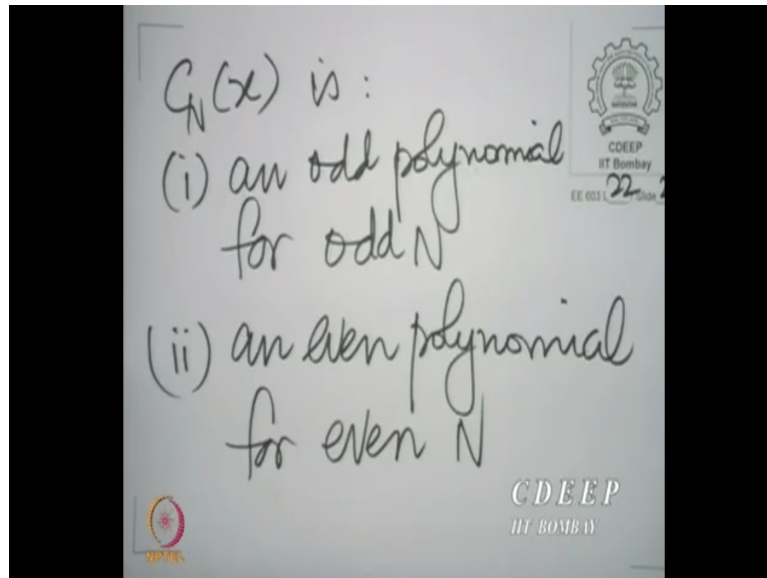 C_N(x) is :
(i) an odd polynomial
for odd N
(ii) an even polynomial
for even N
CDEEP
IIT Bombay
EE 603 L 22 / Slide
CDEEP
IIT BOMBAY
NPTEL